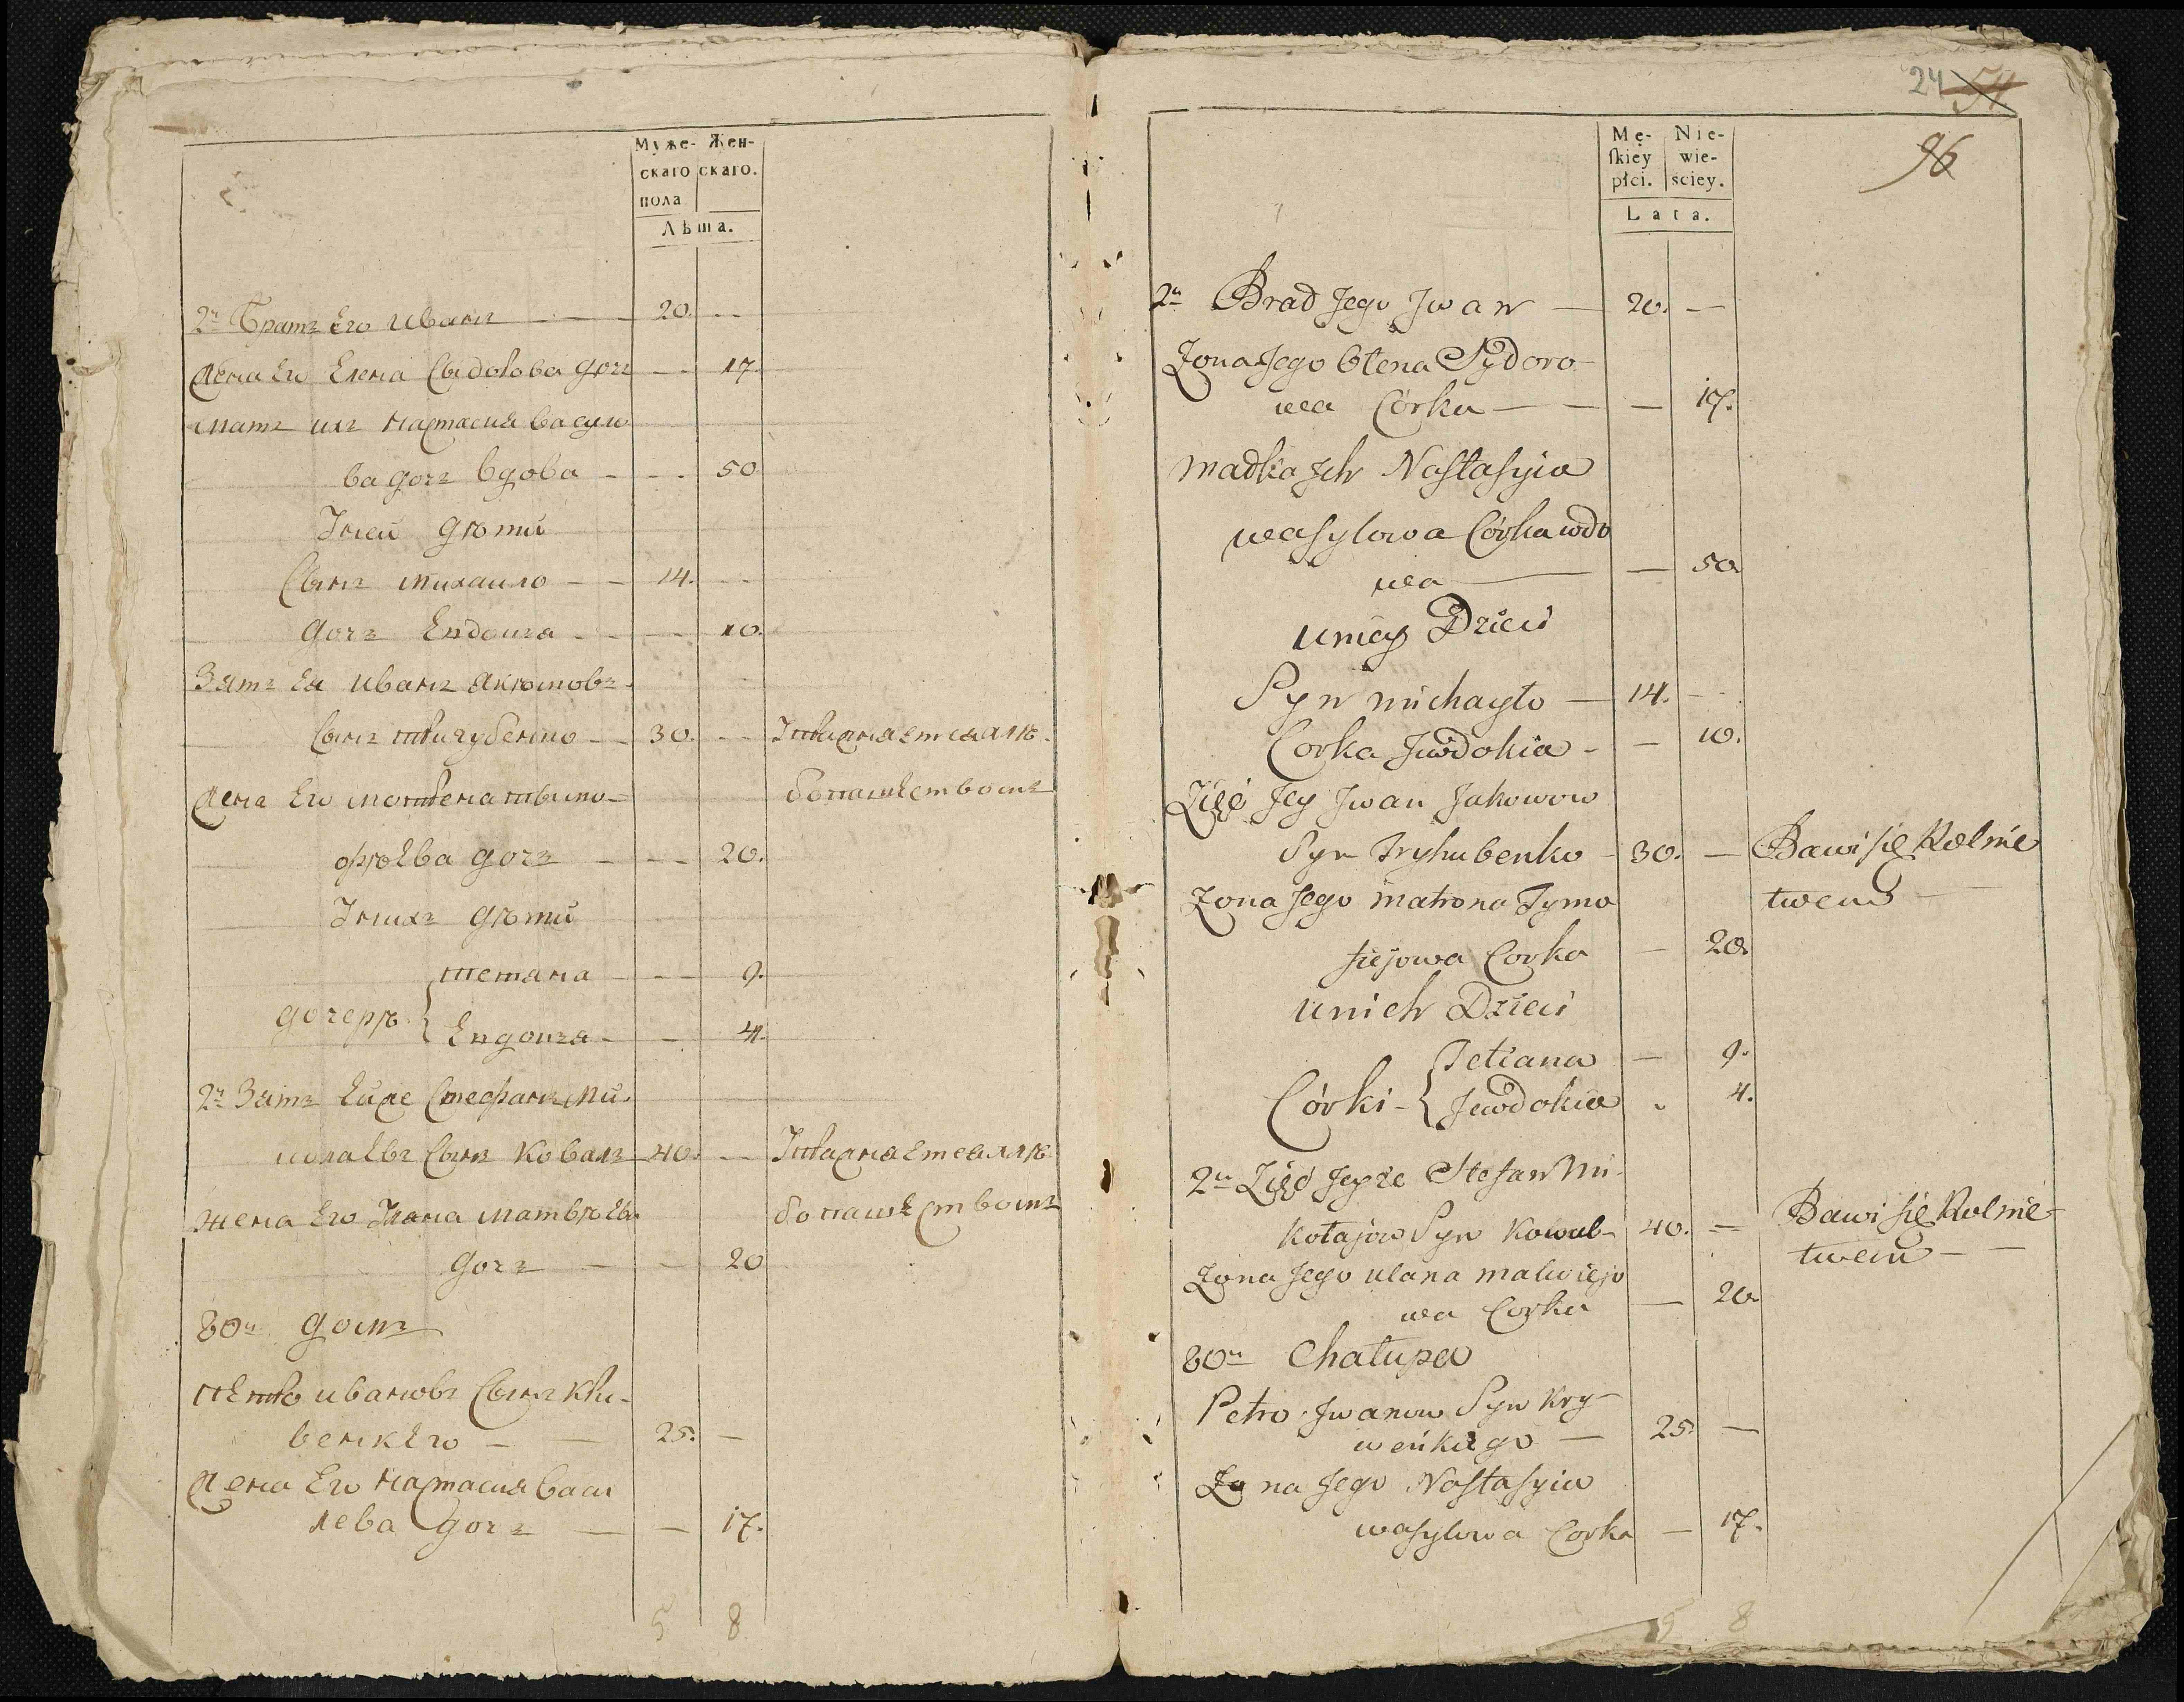 Муже- Жен-
скаго скаго.
пола
Лѣта.
2й Братъ Его Иванъ — 20. —
Жена Его Елена Сыдорова дочъ — 17.
мать ихъ Настасия Васули
ва дочъ вдова — 50
Унеи дѣти
Сынъ Михаило — 14. —
дочъ Евдокия — 10.
Зять Ея Иванъ Якимовъ
Сынъ Тригубенко — 30. —
Жена Его Мотрена Тимо-
фѣева дочъ — 20.
Унихъ дѣти
Тетяна — 9.
дочерѣ { Евдокия — 4.
2й Зять Ейже Стефанъ Ми-
колаевъ Сынъ Коваль 40. —
жена Его Уляна Матвѣева
дочъ — 20
80й домъ
Петро Ивановъ Сынъ Кри-
венкего — 25. —
Жена Его Настасия Васи
лева дочъ — 17.
5 8
24 54
96
Mę- Nie-
ſkiey wie-
płci. sciey.
Lata.
2й Brad Jego Jwan — 20. —
Zona Jego Olena Sydoro-
wa Córka — 17.
madka Jch Naſtaſyia
waſylowa Córka wdo
wa — 50
Uniey Dzieci
Syn michayło — 14. —
Corka Jewdokia — 10.
Zięć Jey Jwan Jakowow
Syn Tryhubenko — 30. — Bawi ſię Rolnic
twem —
Zona Jego matrona Tymo
fiejowa Corka — 20.
Unich Dzieci
Tetiana — 9.
Córki - { Jewdokia 4.
2й Zięć Jeyże Stefan Mi-
kołajow Syn Kowal — 40. — Bawi ſię Rolnic-
twem —
Zona Jego ulana matwiejo
wa Corka — 20.
80й Chałupa
Petro Jwanow Syn Kry-
weńkiego — 25. —
Zona Jego Naſtaſyia
waſylowa Corka — 17.
5 8